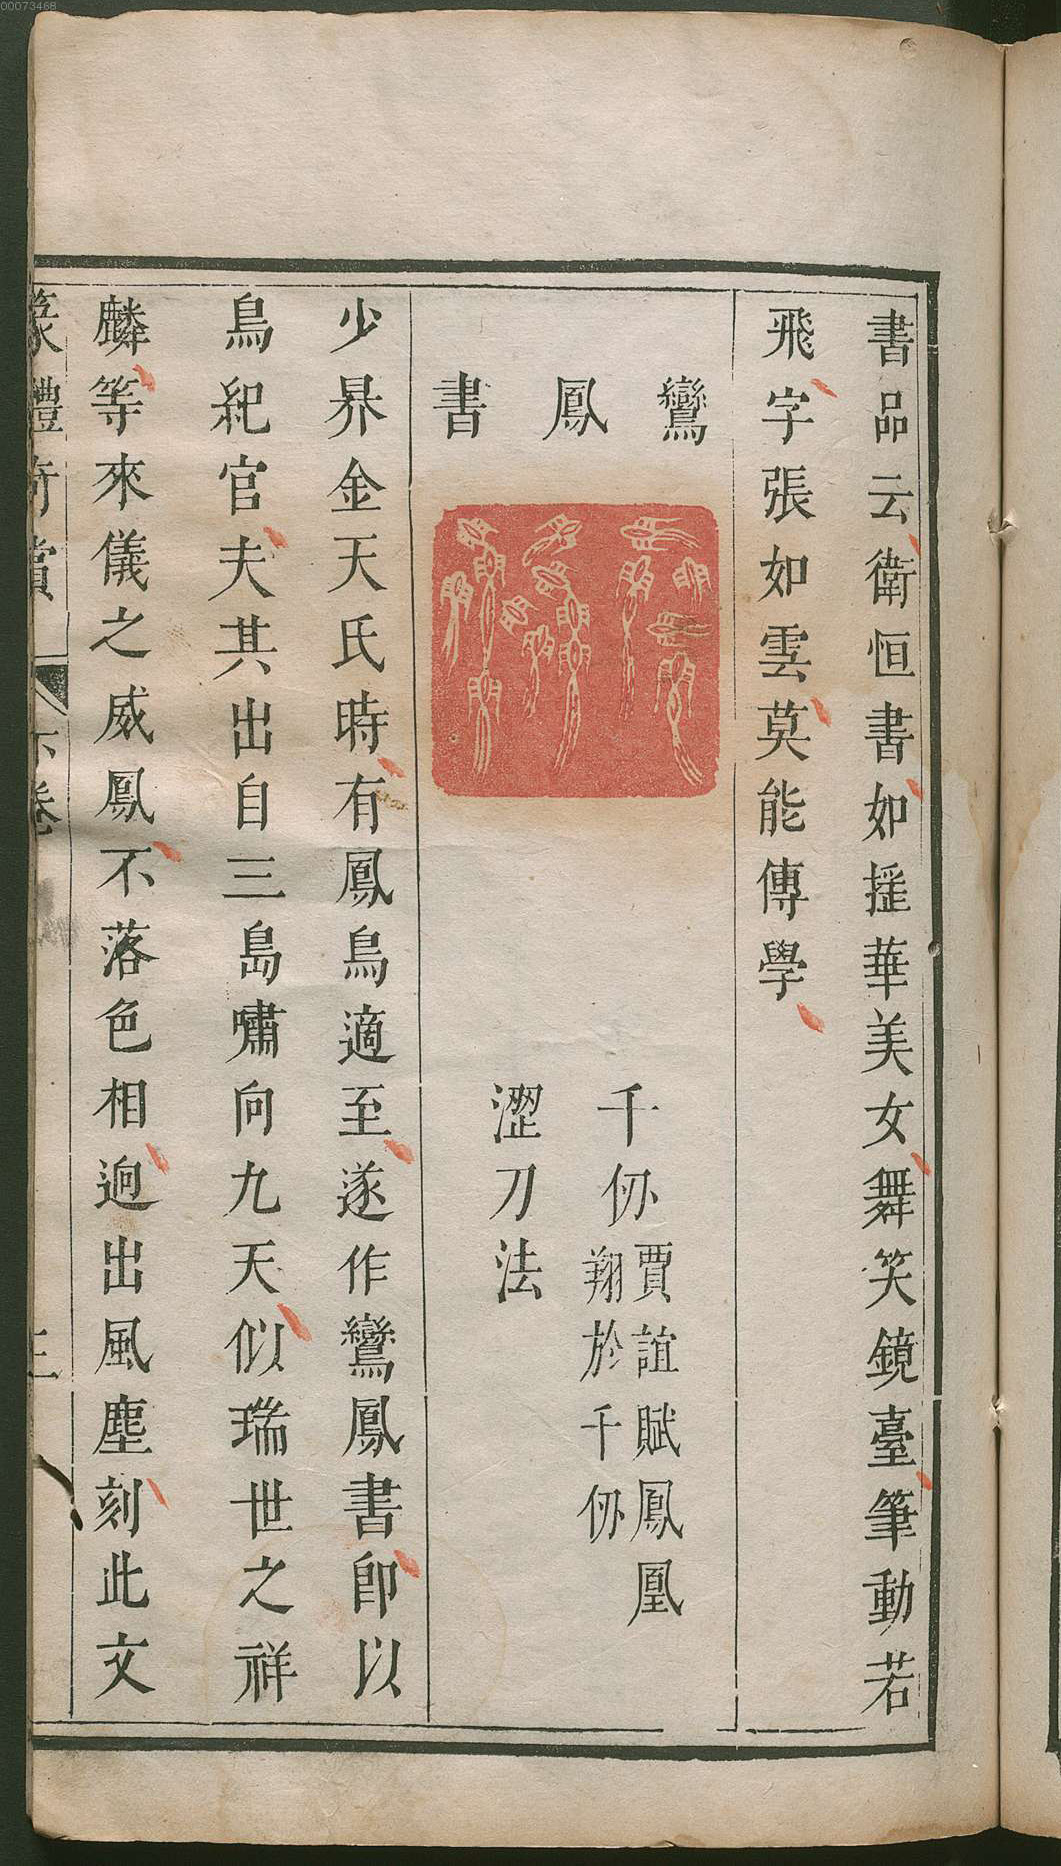 00073468
書品云衛恒書如揷華美女舞笑鏡臺筆動若
飛字張如雲莫能傳學
鸞鳳書
千仞
賈誼賦鳳凰
翔於千仞
澀刀法
少昇金天氏時有鳳鳥適至遂作鸞鳳書卽以
鳥紀官夫其出自三島嘯向九天似瑞世之祥
麟等來儀之威鳳不落色相逈出風塵刻此文
篆體奇賞
下卷